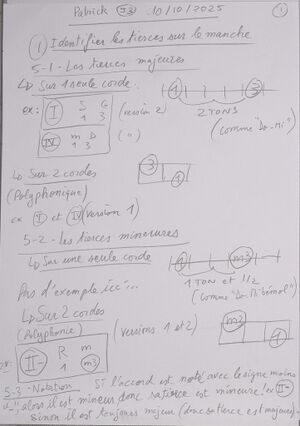 Patrick 10/10/2025 1
① Identifier les tierces sur le manche
5-1- Les tierces majeures
↳ Sur 1 seule corde.
1 3
ex: I S G (version 2) 2 TONS
1 3
IV m D (")
1 3
(comme "Do-Mi")
↳ Sur 2 cordes
(Polyphonique)
3
1
ex I et IV (version 1)
5-2- les tierces mineures
↳ Sur une seule corde
1 m3
1 TON et 1/2
(comme "Do-Mi bémol")
Pas d'exemple ici...
↳ Sur 2 cordes
(Polyphonie) (versions 1 et 2)
m3
1
ex: II- R m
1 m3
5-3- Notation. Si l'accord est noté avec le signe moins
"-" alors il est mineur donc sa tierce est mineure! ex II-
Sinon il est toujours majeur (donc sa tierce est majeure).